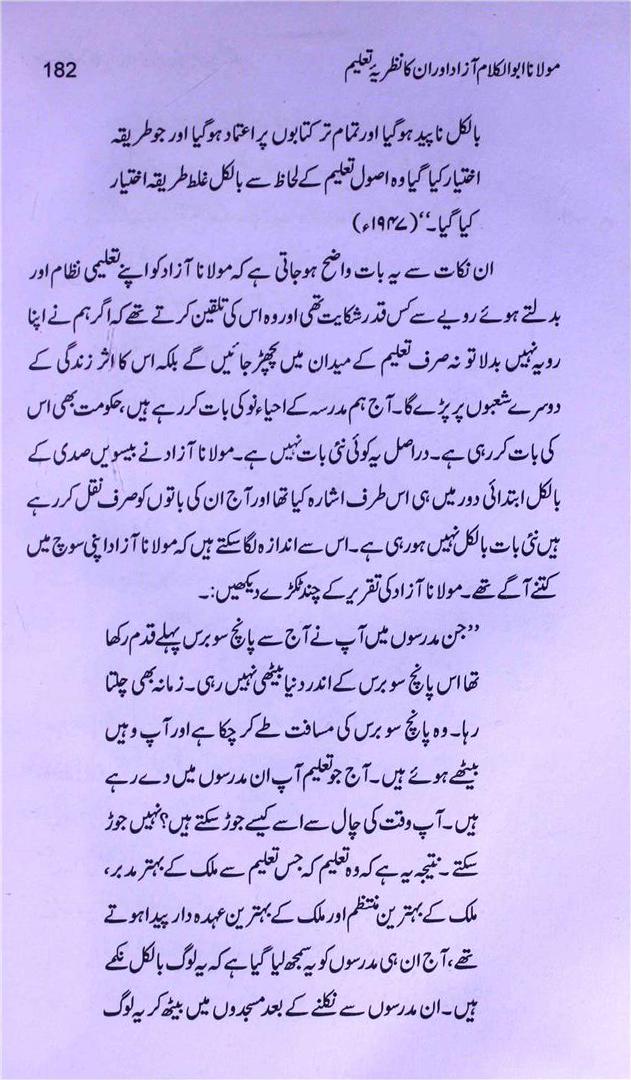 مولانا ابوالکلام آزاد اور ان کا نظریۂ تعلیم 182
بالکل ناپید ہوگیا اور تمام تر کتابوں پر اعتماد ہوگیا اور جو طریقہ
اختیار کیا گیا وہ اصول تعلیم کے لحاظ سے بالکل غلط طریقہ اختیار
کیا گیا۔‘‘ (۱۹۴۷ء)
ان نکات سے یہ بات واضح ہوجاتی ہے کہ مولانا آزاد کو اپنے تعلیمی نظام اور
بدلتے ہوئے رویے سے کس قدر شکایت تھی اور وہ اس کی تلقین کرتے تھے کہ اگر ہم نے اپنا
رویہ نہیں بدلا تو نہ صرف تعلیم کے میدان میں پچھڑ جائیں گے بلکہ اس کا اثر زندگی کے
دوسرے شعبوں پر پڑے گا۔ آج ہم مدرسہ کے احیاء نو کی بات کر رہے ہیں، حکومت بھی اس
کی بات کر رہی ہے۔ دراصل یہ کوئی نئی بات نہیں ہے۔ مولانا آزاد نے بیسویں صدی کے
بالکل ابتدائی دور میں ہی اس طرف اشارہ کیا تھا اور آج ان کی باتوں کو صرف نقل کر رہے
ہیں نئی بات بالکل نہیں ہو رہی ہے۔ اس سے اندازہ لگا سکتے ہیں کہ مولانا آزاد اپنی سوچ میں
کتنے آگے تھے۔ مولانا آزاد کی تقریر کے چند ٹکڑے دیکھیں:۔
’’جن مدرسوں میں آپ نے آج سے پانچ سو برس پہلے قدم رکھا
تھا اس پانچ سو برس کے اندر دنیا بیٹھی نہیں رہی۔ زمانہ بھی چلتا
رہا۔ وہ پانچ سو برس کی مسافت طے کر چکا ہے اور آپ وہیں
بیٹھے ہوئے ہیں۔ آج جو تعلیم آپ ان مدرسوں میں دے رہے
ہیں۔ آپ وقت کی چال سے اسے کیسے جوڑ سکتے ہیں؟ نہیں جوڑ
سکتے۔ نتیجہ یہ ہے کہ وہ تعلیم کہ جس تعلیم سے ملک کے بہتر مدبر،
ملک کے بہترین منتظم اور ملک کے بہترین عہدہ دار پیدا ہوتے
تھے، آج ان ہی مدرسوں کو یہ سمجھ لیا گیا ہے کہ یہ لوگ بالکل نکمے
ہیں۔ ان مدرسوں سے نکلنے کے بعد مسجدوں میں بیٹھ کر یہ لوگ